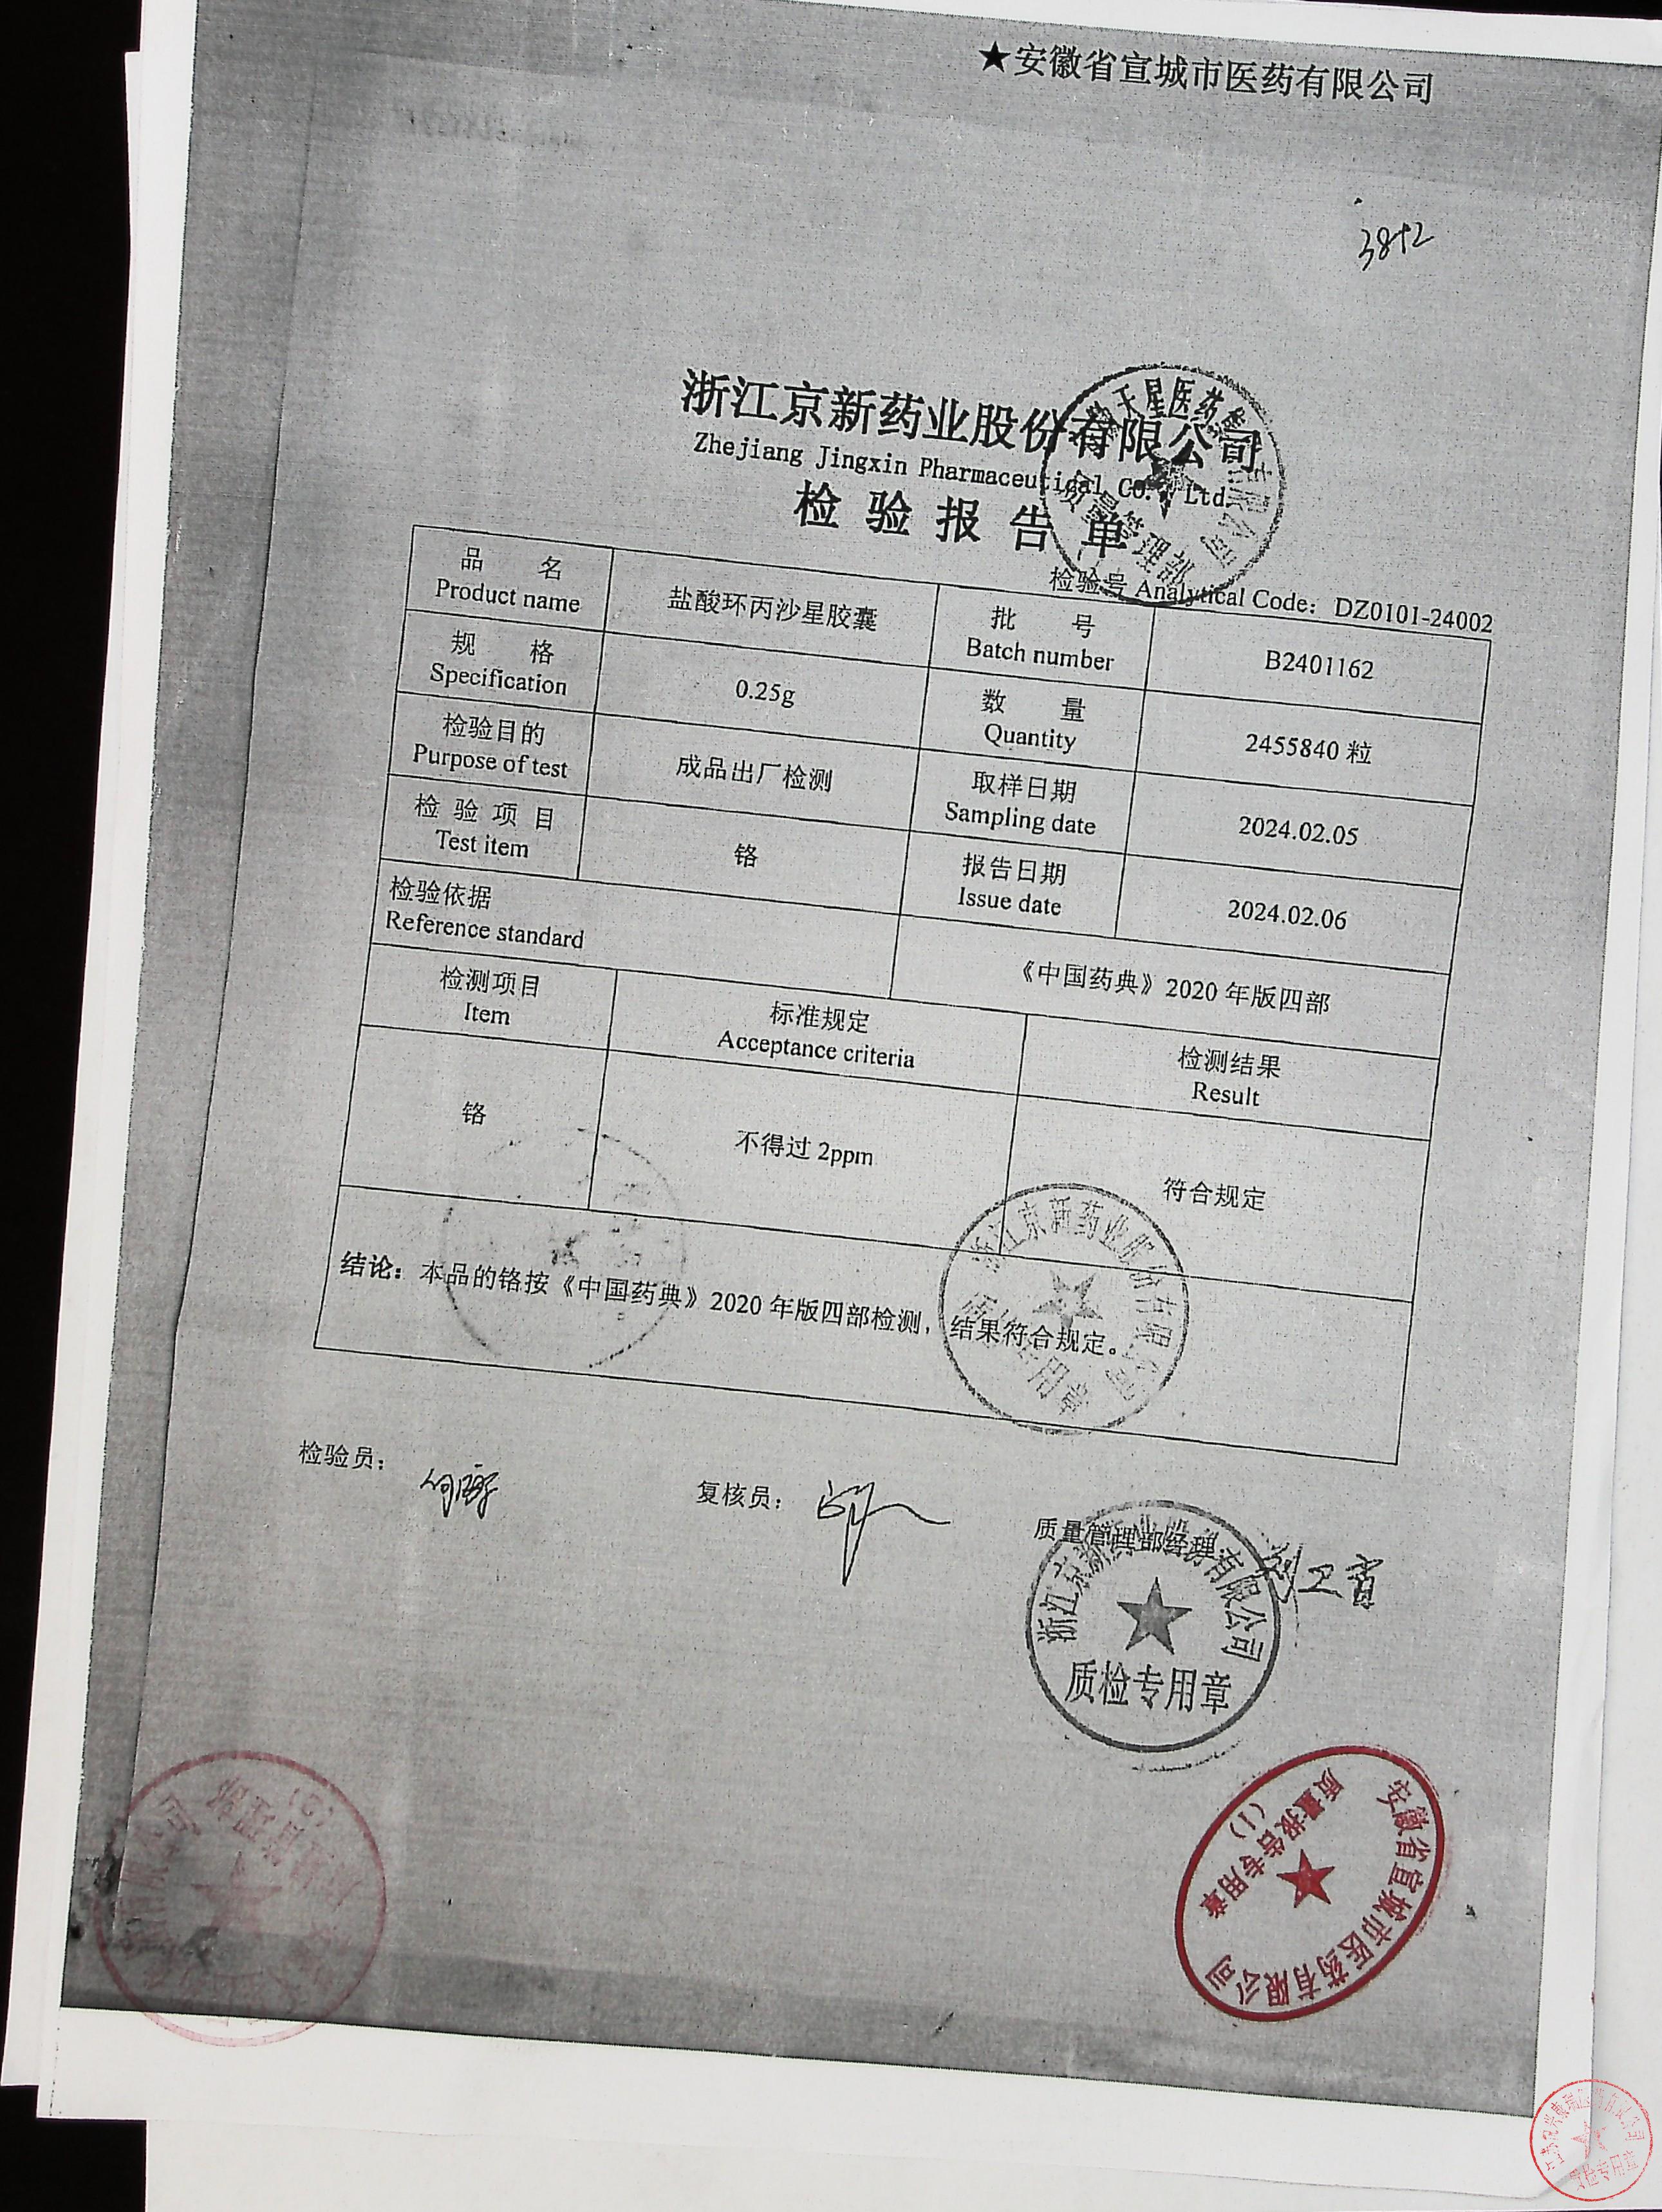 ★安徽省宣城市医药有限公司
浙江京新药业股份有限公司
Zhejiang Jingxin Pharmaceutical Co., Ltd.
检验报告单
检验号 Analytical Code: DZ0101-24002
品名 盐酸环丙沙星胶囊 批号 B2401162
Product name Batch number
规格 0.25g 数量 2455840 粒
Specification Quantity
检验目的 成品出厂检测 取样日期 2024.02.05
Purpose of test Sampling date
检验项目 铬 报告日期 2024.02.06
Test item Issue date
检验依据 《中国药典》2020 年版四部
Reference standard
检测项目 标准规定 检测结果
Item Acceptance criteria Result
铬 不得过 2ppm 符合规定
结论：本品的铬按《中国药典》2020 年版四部检测，结果符合规定。
检验员：
复核员：
质量管理部经理
浙江京新药业股份有限公司
质检专用章
浙江京新药业股份有限公司
安徽省宣城市医药有限公司
质量报告专用章
(1)